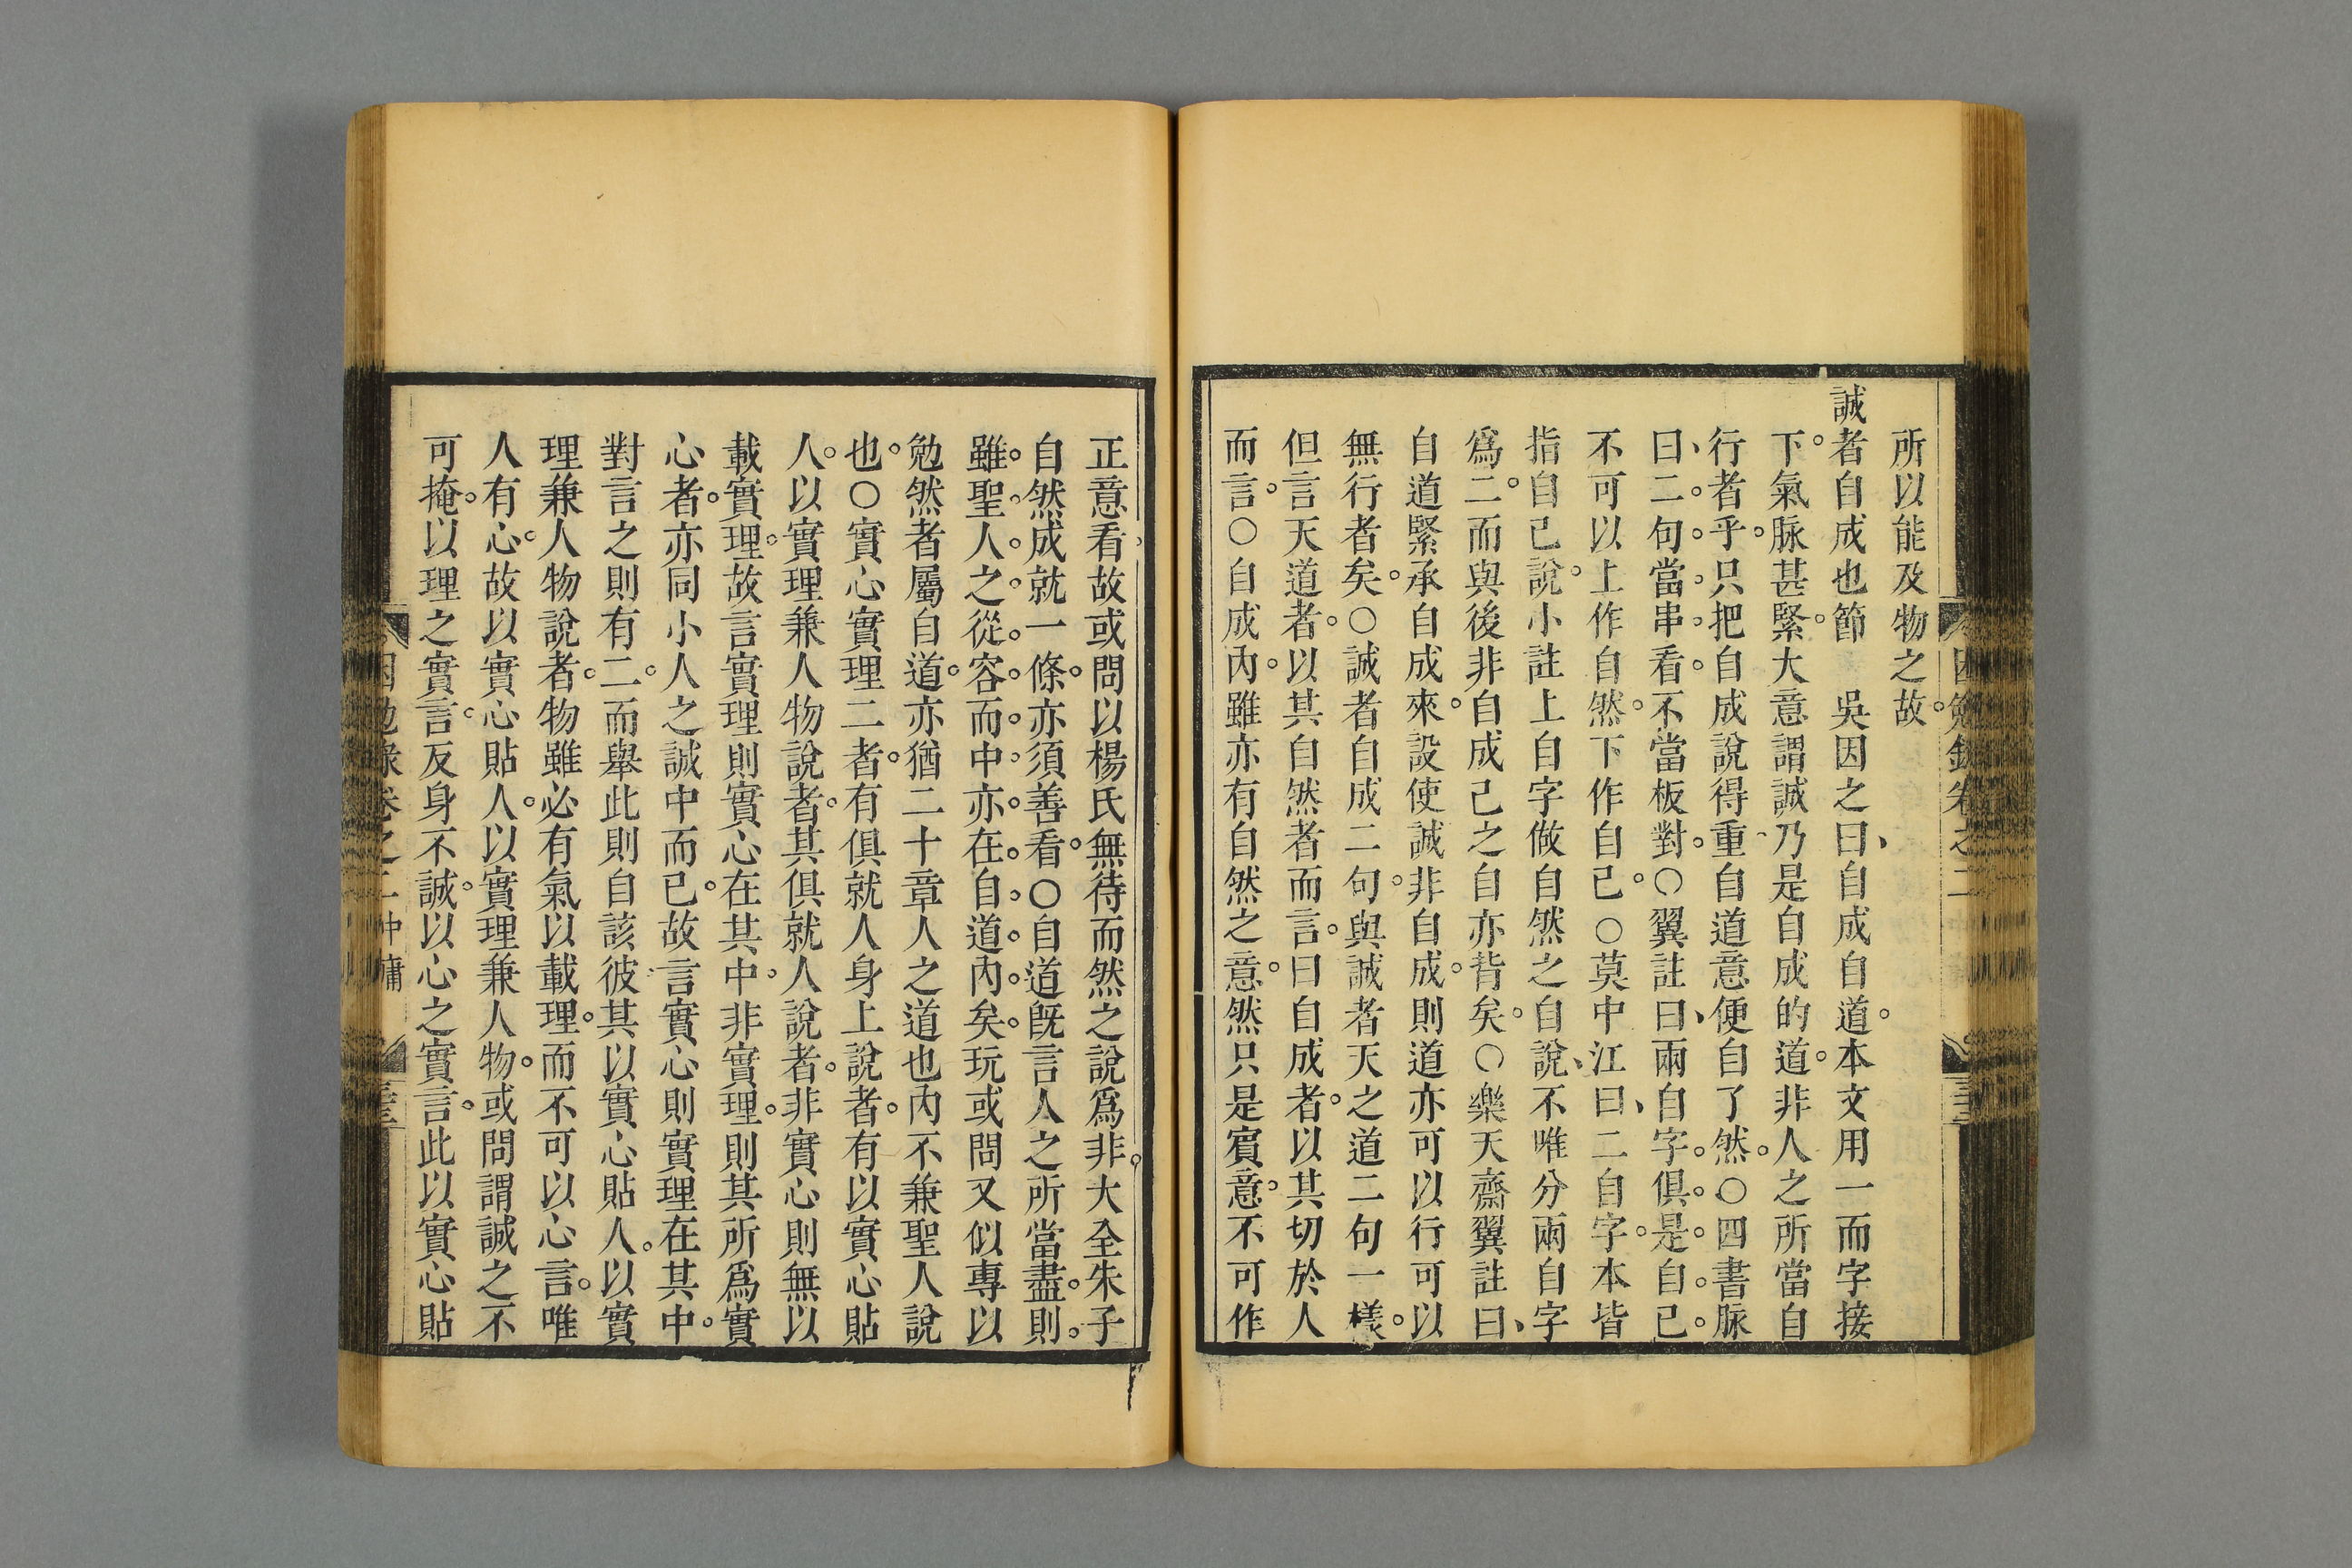 所以能及物之故。
誠者自成也節　吳因之曰、自成自道。本文用一而字接
下。氣脉甚緊。大意謂誠乃是自成的道。非人之所當自
行者乎。只把自成說得重、自道意便自了然。○四書脉
曰、二句當串看。不當板對。○翼註曰、兩自字。俱是自己。
不可以上作自然。下作自己。○莫中江曰、二自字。本皆
指自己說。小註上自字做自然之自說、不唯分兩自字
爲二。而與後非自成己之自亦背矣。○樂天齋翼註曰、
自道緊承自成來。設使誠非自成。則道亦可以行可以
無行者矣。○誠者自成二句。與誠者天之道二句一樣。
但言天道者。以其自然者而言。曰自成者。以其切於人
而言。○自成內。雖亦有自然之意。然只是賓意。不可作
正意看。故或問以楊氏無待而然之說爲非。大全朱子
自然成就一條。亦須善看。○自道旣言人之所當盡。則。
雖。聖。人。之。從。容。而。中。亦。在。自。道。內。矣。玩或問又似專以
勉然者屬自道。亦猶二十章人之道也內不兼聖人說
也。○實心實理二者。有俱就人身上說者。有以實心貼
人。以實理兼人物說者。其俱就人說者。非實心則無以
載實理。故言實理則實心在其中。非實理。則其所爲實
心者。亦同小人之誠中而已。故言實心則實理在其中。
對言之則有二。而舉此則自該彼。其以實心貼人。以實
理兼人物說者。物雖必有氣以載理。而不可以心言。唯
人有心。故以實心貼人。以實理兼人物。或問謂誠之不
可掩。以理之實言。反身不誠。以心之實言。此以實心貼
因勉錄卷之二 中庸